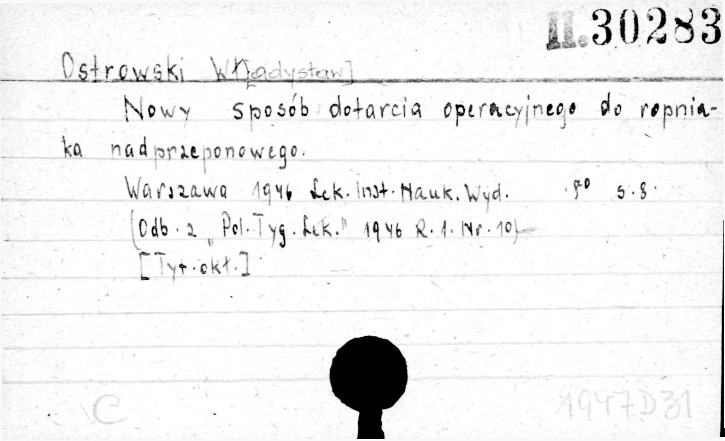 II.30283
Ostrowski Wł[adysław]
Nowy sposób dotarcia operacyjnego do ropnia-
ka nadprzeponowego.
Warszawa 1946 Lek. Inst. Nauk. Wyd. s. 8.
(Odb. z "Pol. Tyg. Lek." 1946 R. 1. Nr. 10)
[Tyt. okł.]
C 1947D31